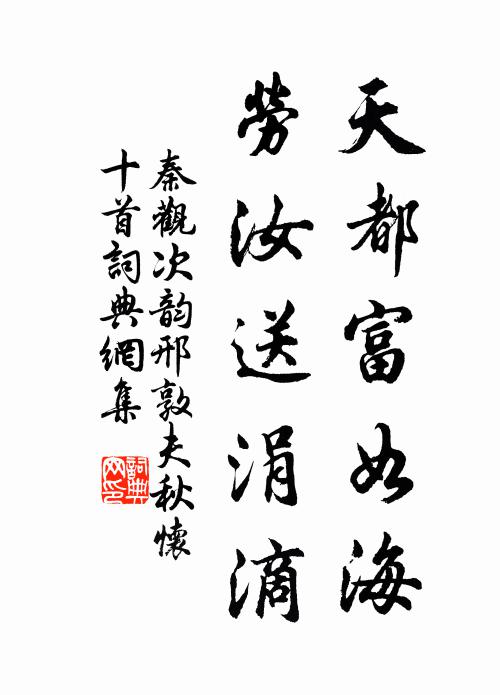 天都富如海
勞汝送涓滴
秦觀次韵邢敦夫秋懷
十首詞典網集
詞典
网印